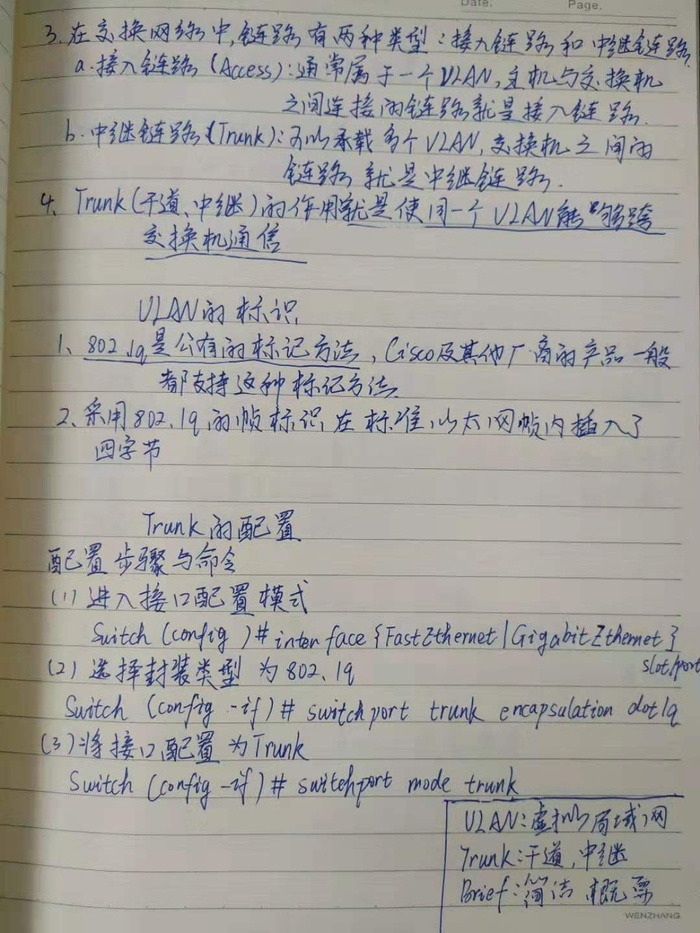 Date.
Page.
3. 在交换网络中,链路有两种类型:接入链路和中继链路.
a.接入链路 (Access):通常属于一个VLAN,主机与交换机
之间连接的链路就是接入链路.
b.中继链路(Trunk):可以承载多个VLAN,交换机之间的
链路就是中继链路.
4、Trunk(干道、中继)的作用就是使同一个VLAN能够跨
交换机通信
VLAN的标识
1、802.1q是公有的标记方法,Cisco及其他厂商的产品一般
都支持这种标记方法.
2、采用802.1q的帧标识,在标准以太网帧内插入了
四字节
Trunk的配置
配置步骤与命令
(1)进入接口配置模式
Switch (config)# interface {FastEthernet|GigabitEthernet}
slot/port
(2)选择封装类型为802.1q
Switch (config-if)# switchport trunk encapsulation dot1q
(3)将接口配置为Trunk
Switch (config-if)# switchport mode trunk
VLAN:虚拟局域网
Trunk:干道,中继
Brief:简洁 概
WENZHANG